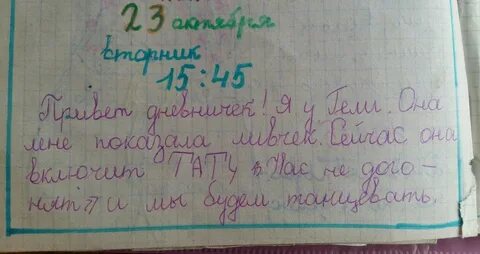 23 октября
вторник
15:45
Привет дневничек! Я у Гели. Она
мне показала ливчек. Сейчас она
включит ТАТу "Нас не дого-
нят" и мы будем танцевать.